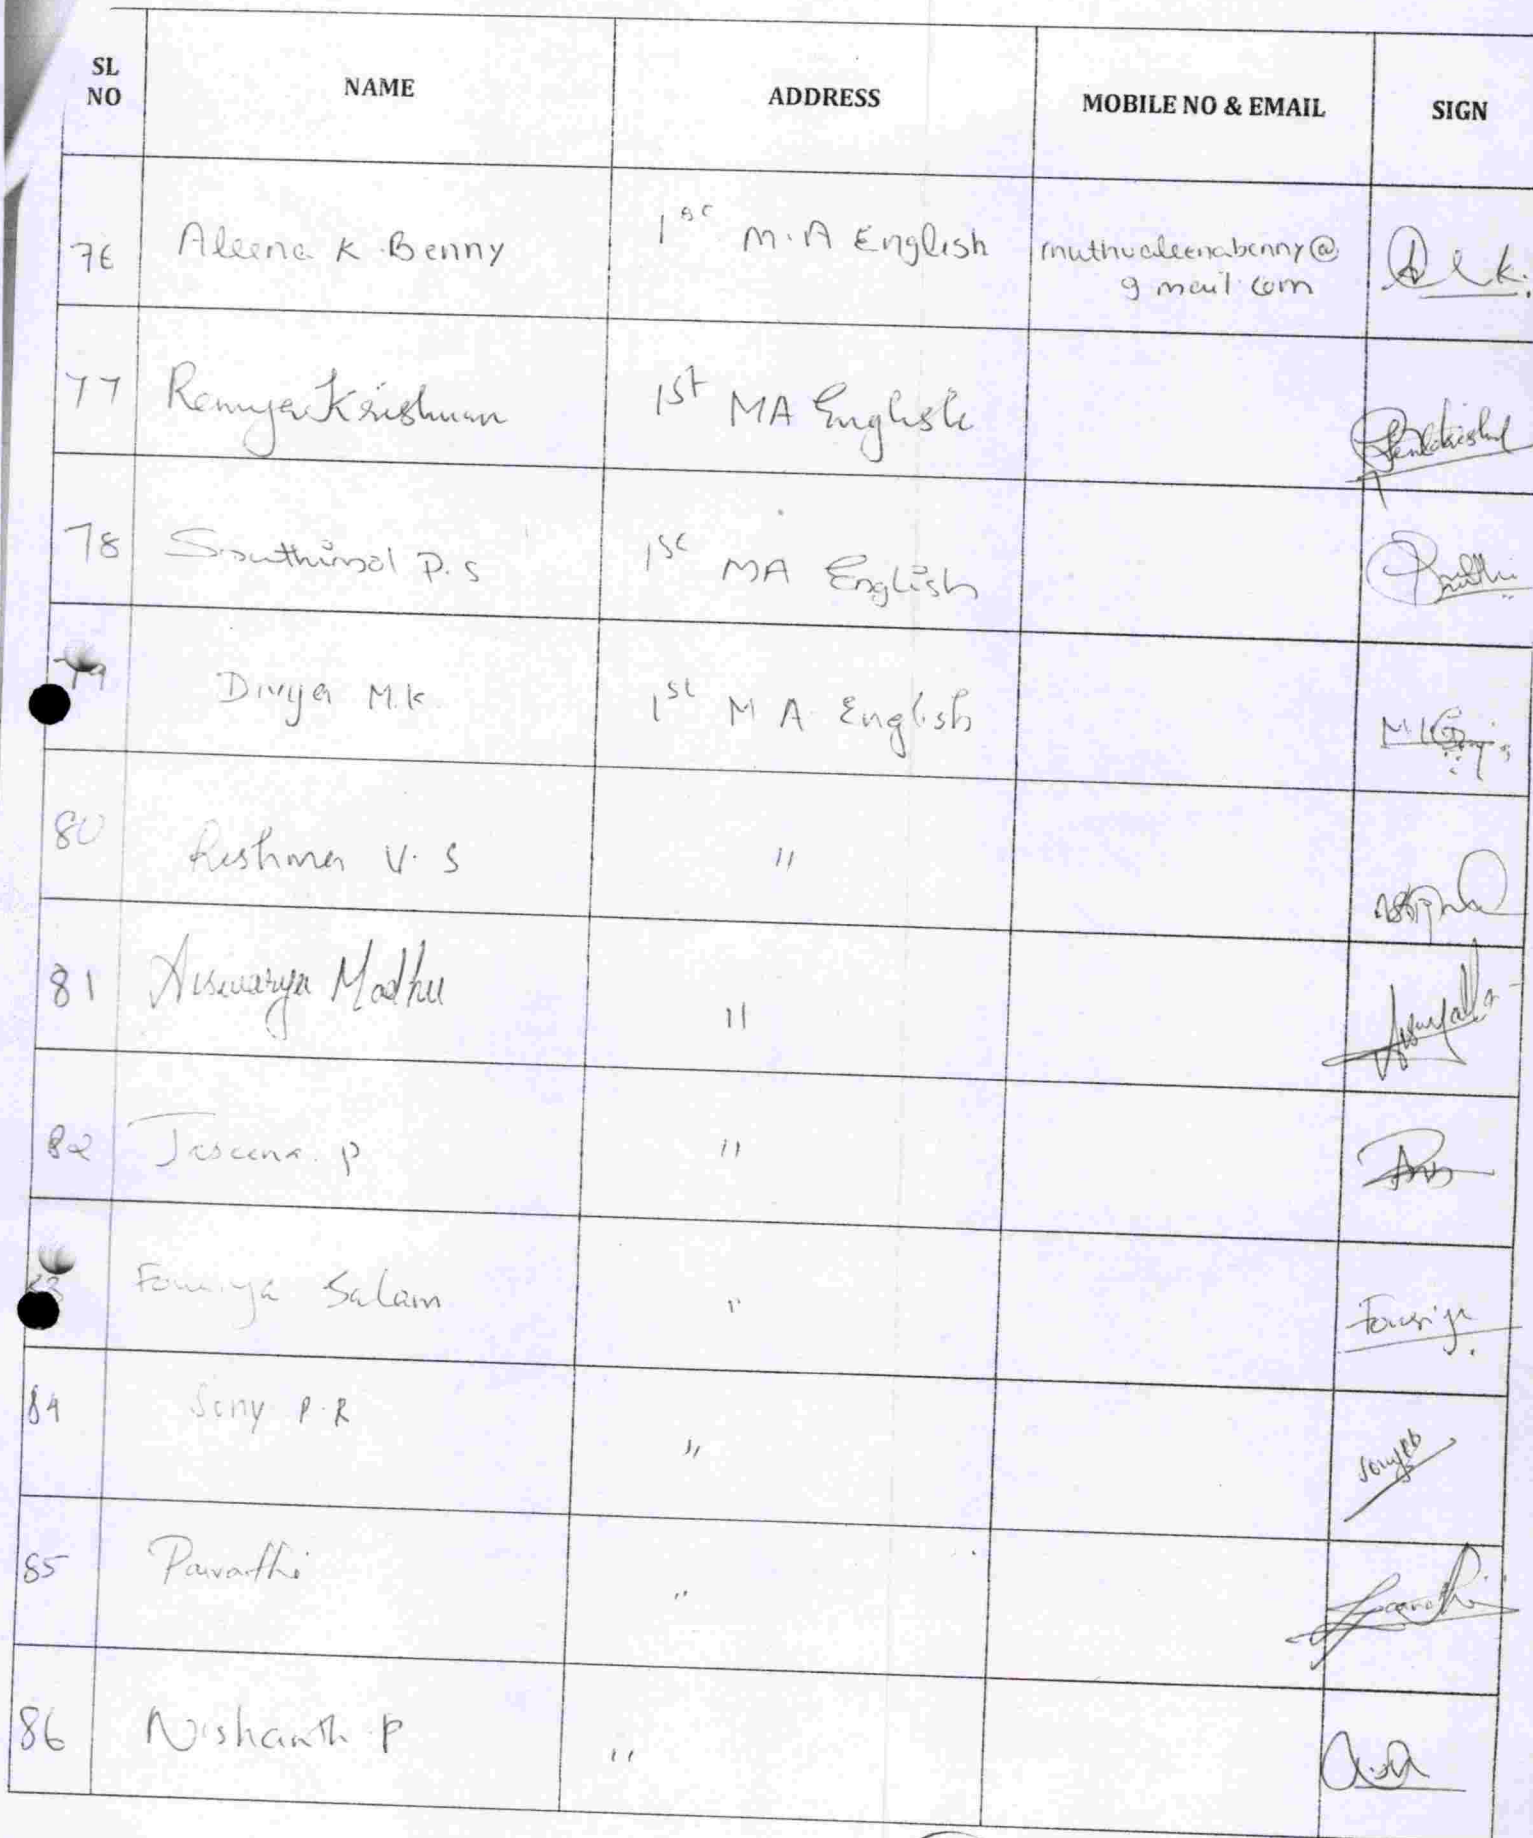 SL NO NAME ADDRESS MOBILE NO & EMAIL SIGN
76 Aleena K. Benny 1st M.A English muthualeenabenny@
gmail.com
77 Remya Krishnan 1st MA English
78 Sruthimol P.S 1st MA English
79 Divya M.K 1st M A English
80 Reshma V.S "
81 Aiswarya Madhu "
82 Jaseena. P "
83 Fousiya Salam " Fousiya
84 Sony P.R "
85 Parvathi "
86 Nishanth P "